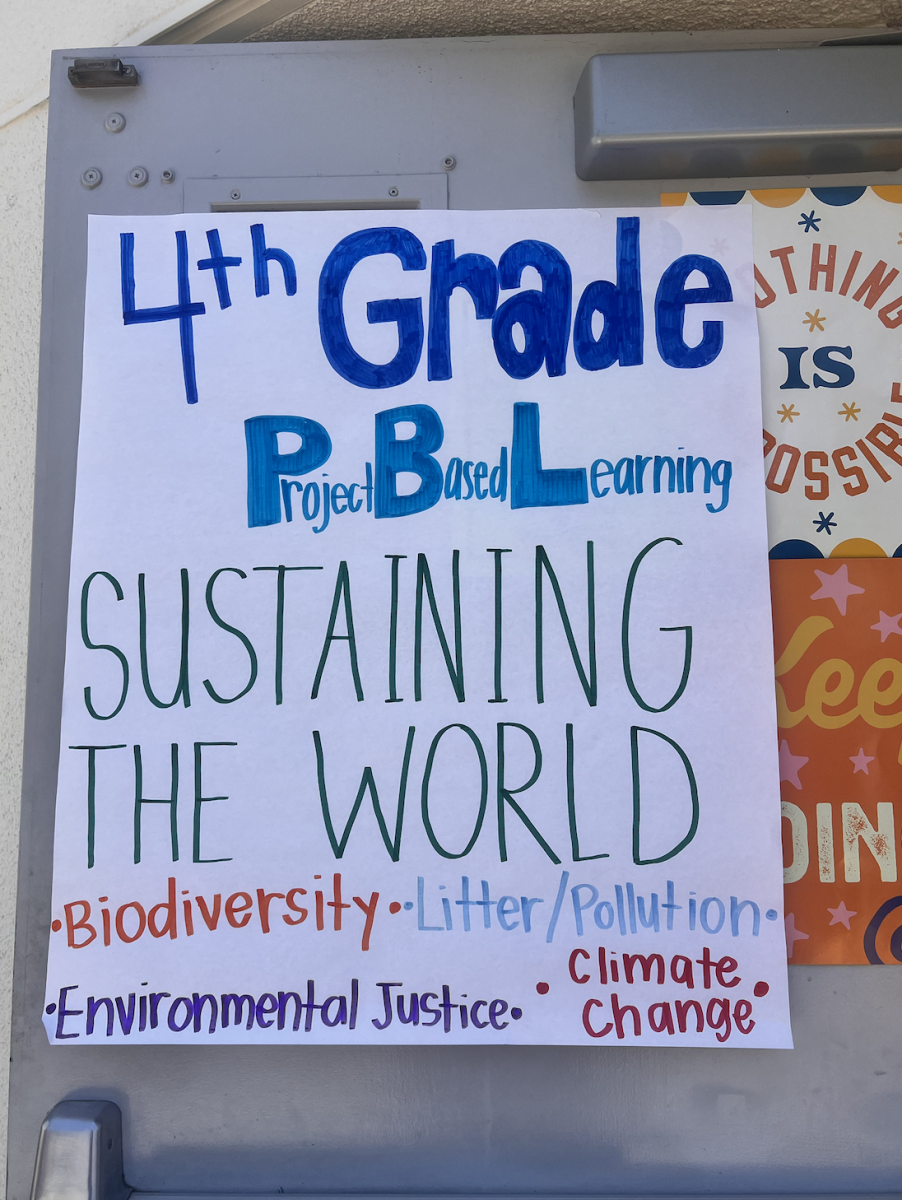 4th Grade
Project Based Learning
SUSTAINING
THE WORLD
•Biodiversity•
•Litter/Pollution•
•Environmental Justice•
•Climate
Change•
IS